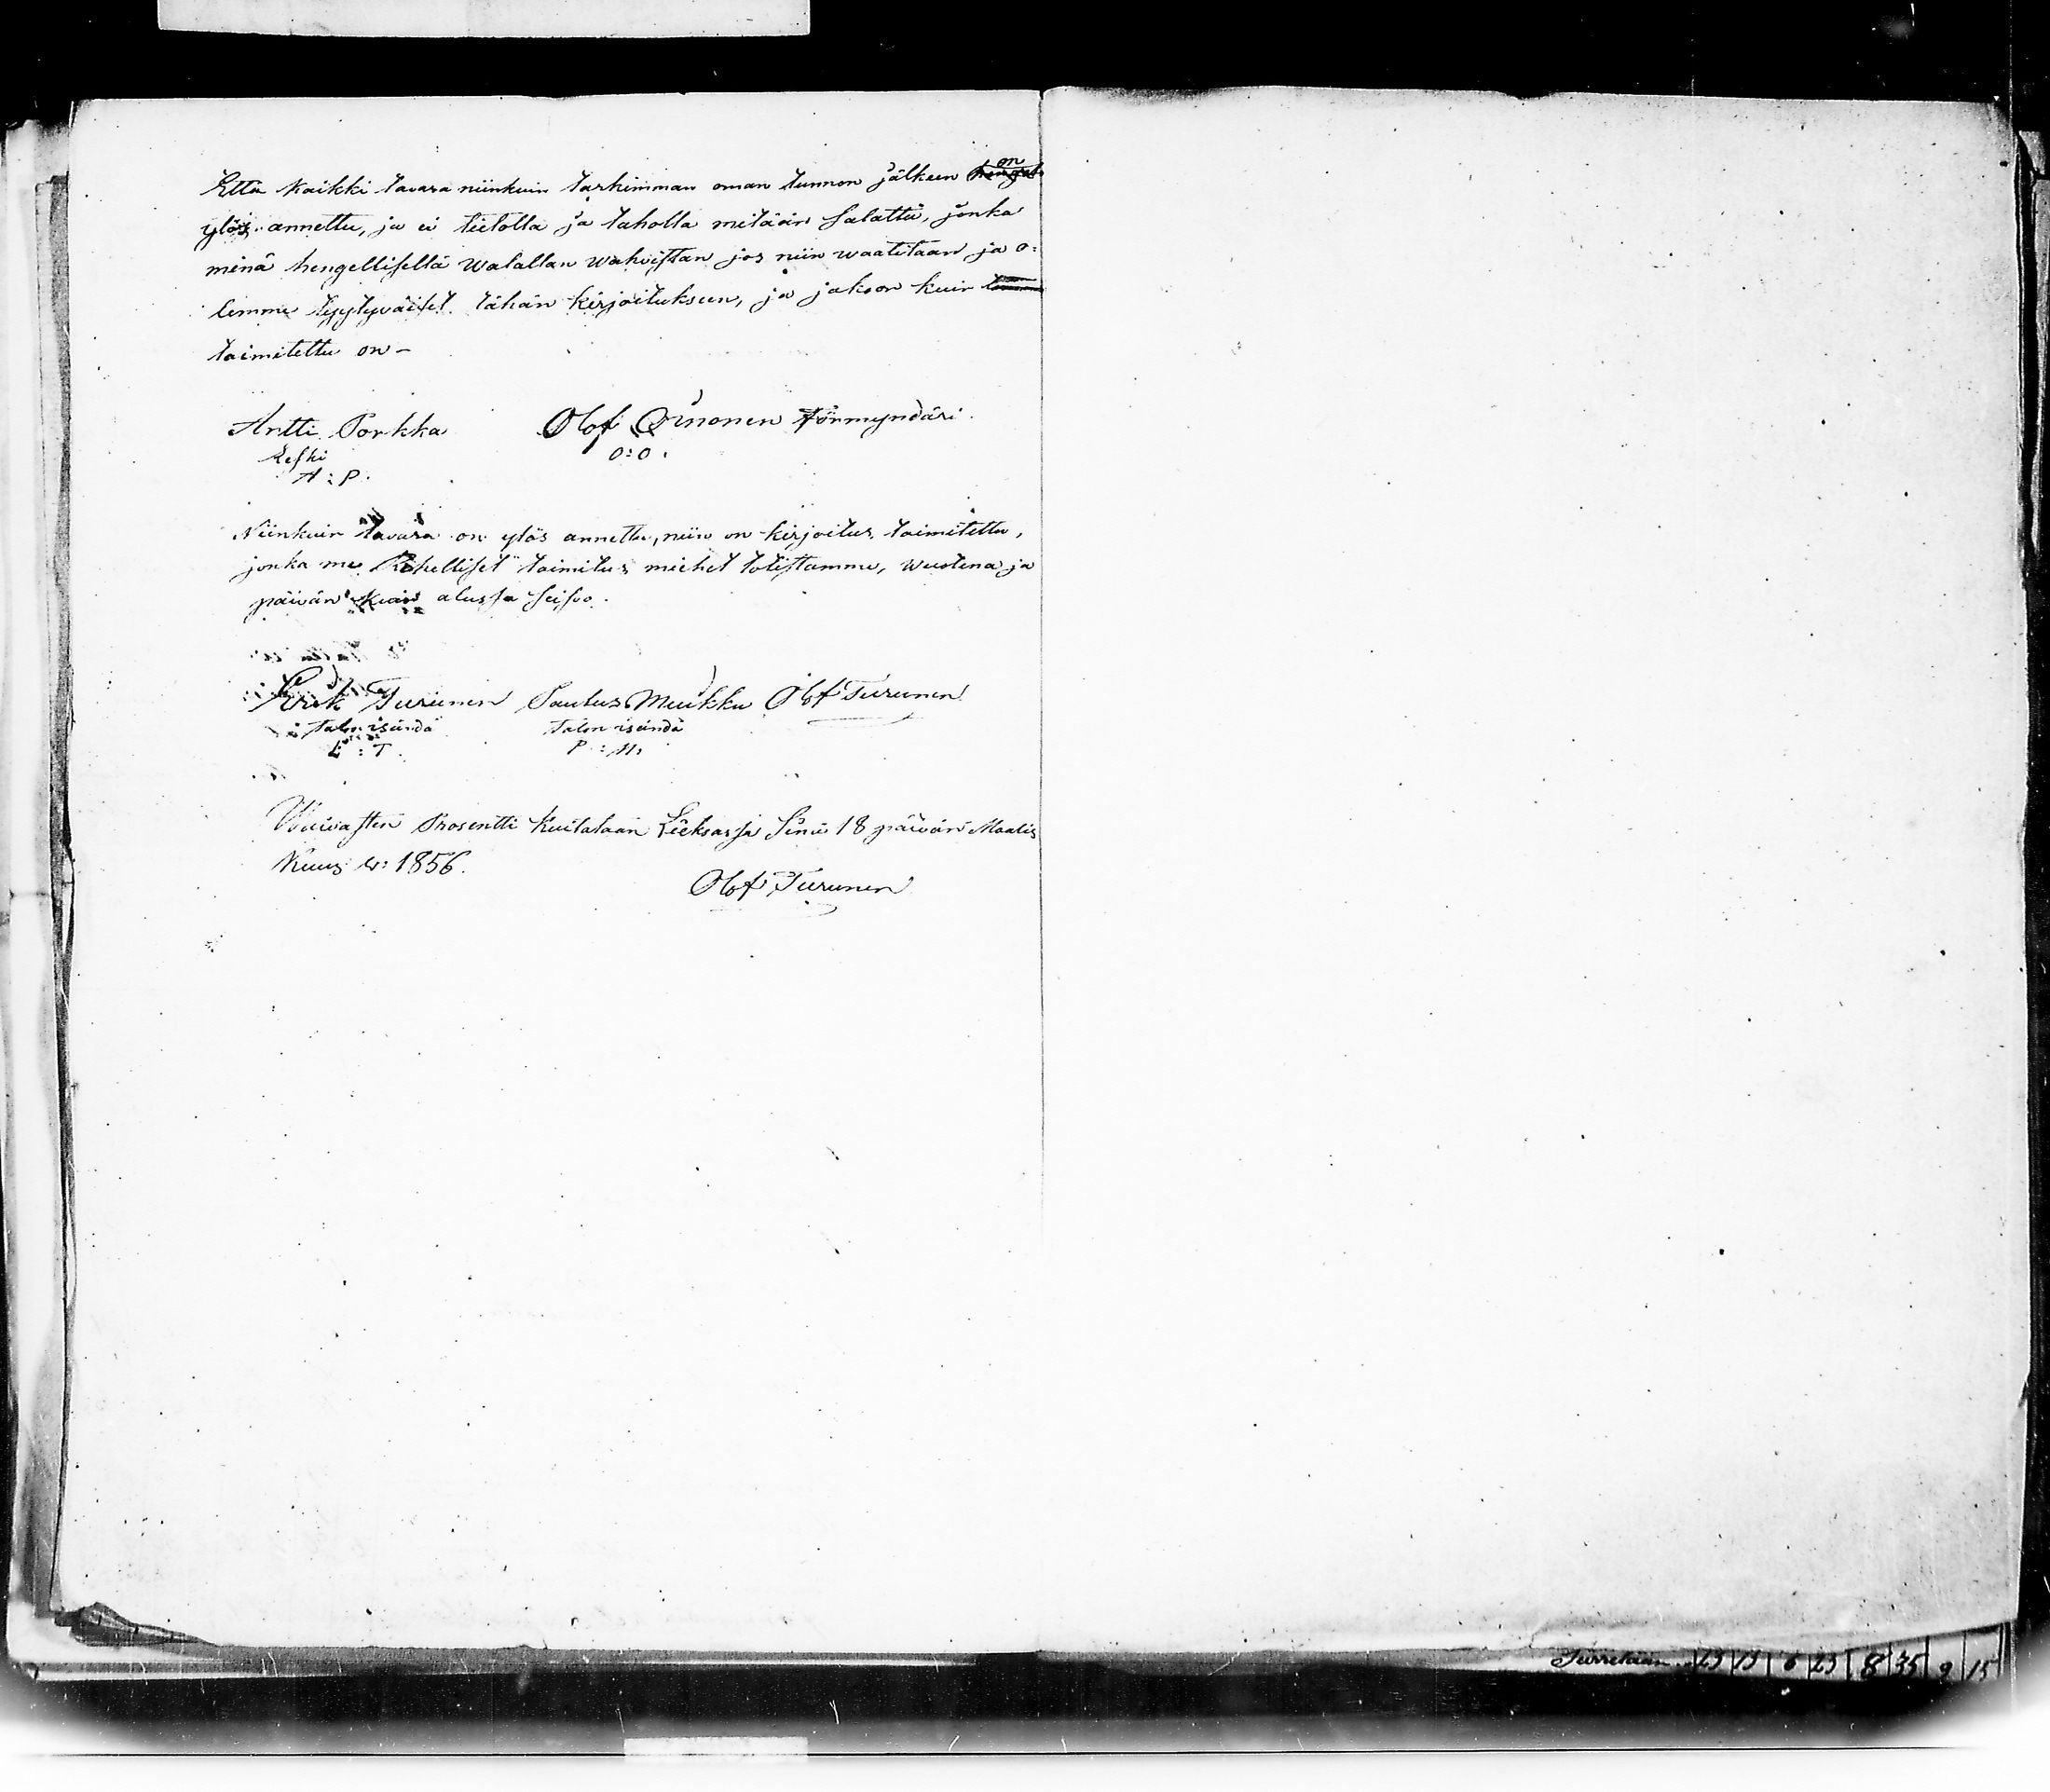 Että Kaikki tavara niinkuin tarkimman oman tunnon jälkeen on
ylös annettu, ja ei tietolla ja taholla mitään salattu, jonka
minä hengellisellä walallan wahvistan jos niin waatitaan ja o=
lemme tyytyväiset tähän kirjoitukseen, ja jakoon kuin
toimitettu on –
Antti Porkka Olof Oinonen Förmyndäri.
Leski O:O.
A:P.
Niinkuin tavara on ylös annettu, niin on kirjoitus toimitettu,
jonka me Rehelliset toimitus miehet totistamme, wuotena ja
päivän kuin alussa seisoo.
Erik Turunen Paulus Muikku Olof Turunen
talon isändä talon isändä
E:T. P:M.
Waivasten Prosentti Kuitataan Lieksassa Sinä 18 päivän Maalis
Kuus w: 1856.
Olof Turunen
Siirretään 6 23 8 35 9 15